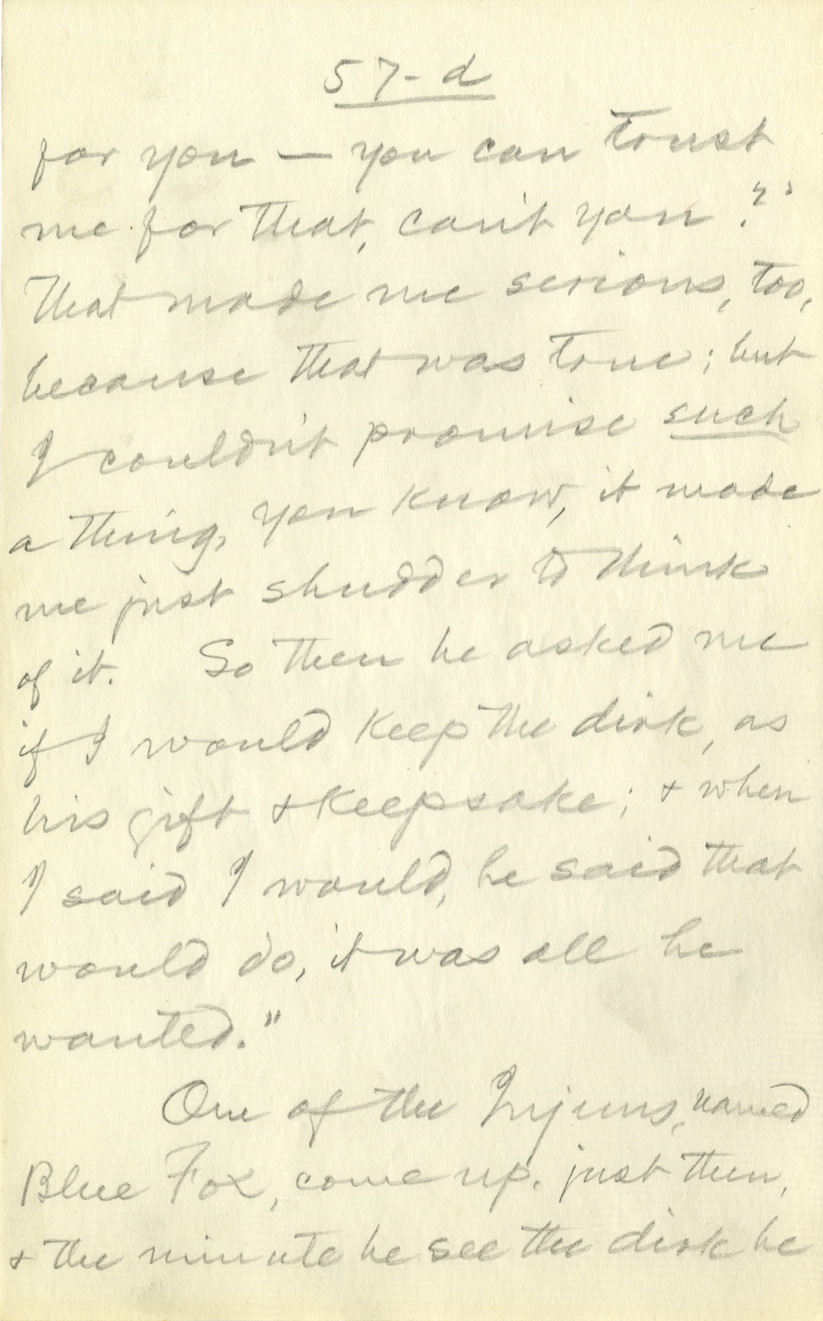 57-d
for you — you can trust
me for that, can't you?"
That made me serious, too,
because that was true; but
I couldn't promise such
a thing, you know, it made
me just shudder to think
of it. So then he asked me
if I would keep the dirk, as
his gift & keepsake; & when
I said I would, he said that
would do, it was all he
wanted."
One of the Injuns, named
Blue Fox, come up, just then,
& the minute he see the dirk he